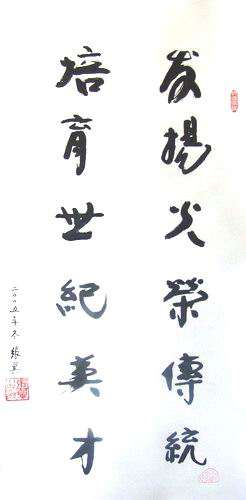 发揚光榮傳統
培育世紀英才
二〇〇五年冬 張